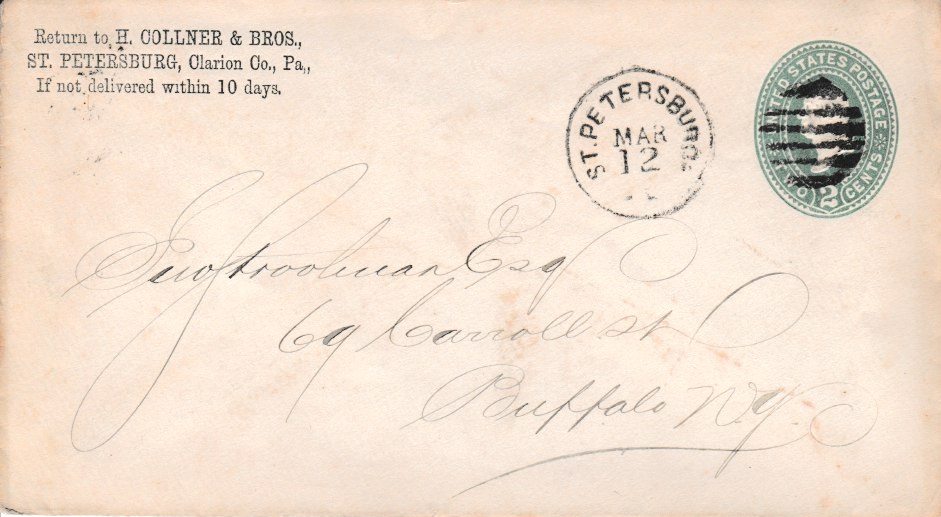 Return to H. COLLNER & BROS.,
ST. PETERSBURG, Clarion Co., Pa.,
If not delivered within 10 days.
ST. PETERSBURG
MAR
12
UNITED STATES POSTAGE
TWO 2 CENTS
Esq
69 Carroll st
Buffalo NY